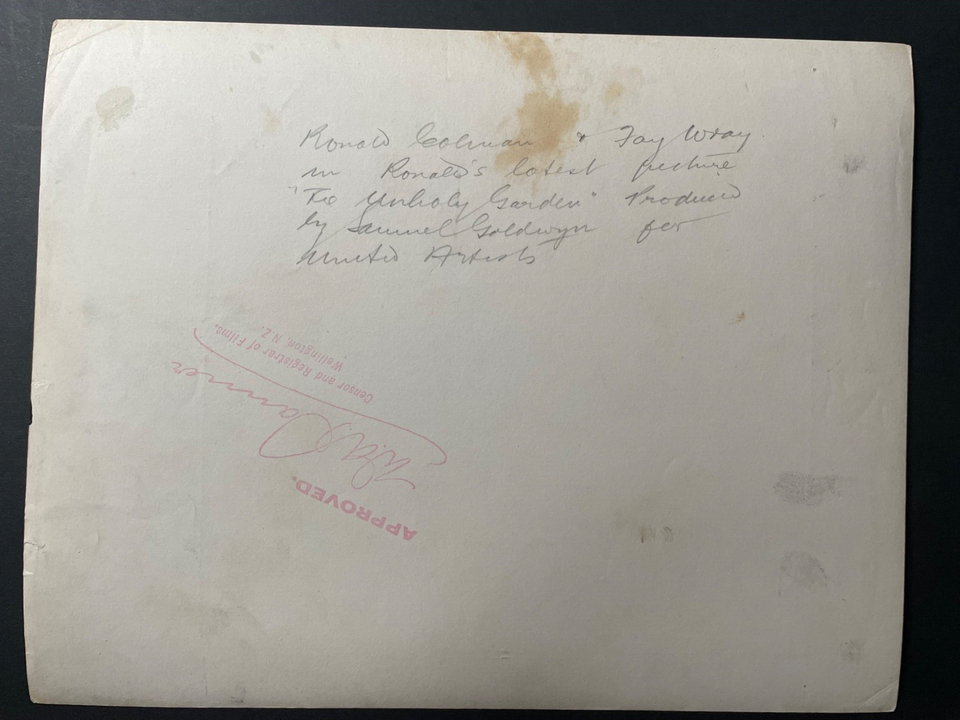 Ronald Colman & Fay Wray
in Ronald's latest picture
"The Unholy Garden" Produced
by Samuel Goldwyn for
United Artists
APPROVED.
W.A. Tanner
Censor and Registrar of Films.
Wellington, N.Z.